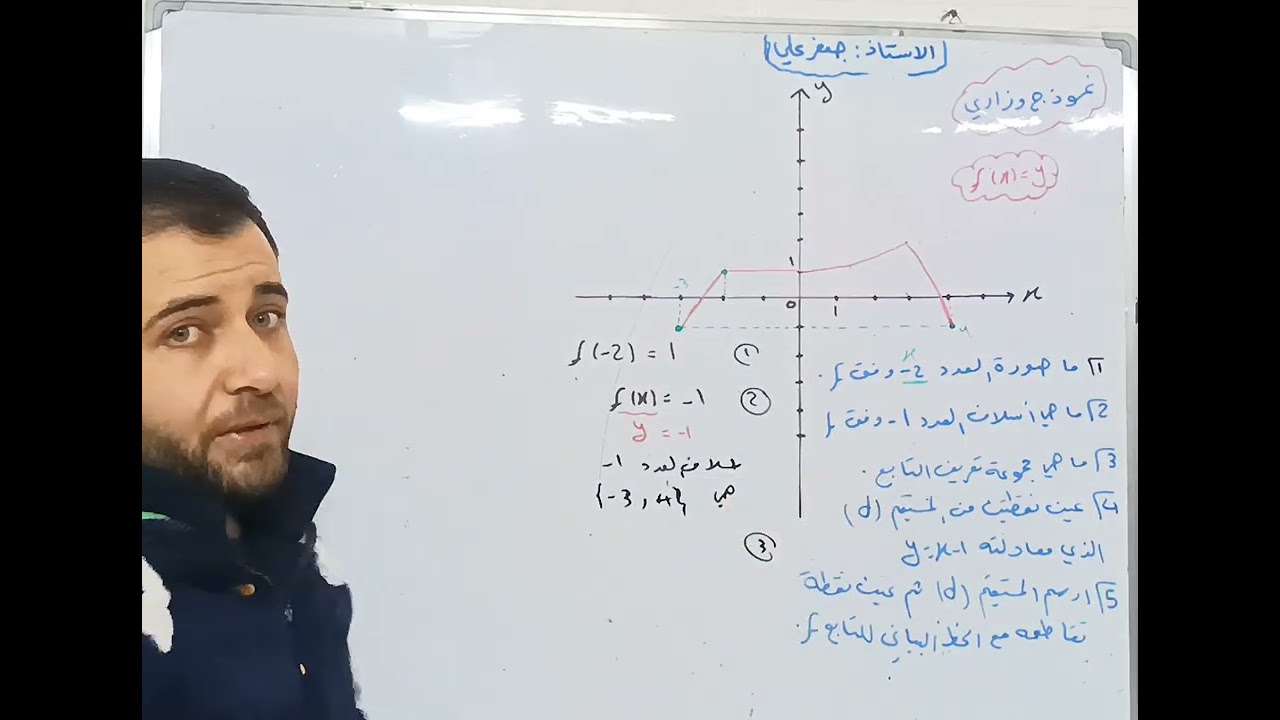 الاستاذ: جعفر علي
نموذج وزاري
f(x)=y
y
x
1
0
1
-3
4
x
1 ما صورة العدد -2 وفق f.
2 ما هي أسلاف العدد -1 وفق f
3 ما هي مجموعة تعريف التابع.
4 عين نقطتين من المستقيم (d)
الذي معادلته y=x-1
5 ارسم المستقيم (d) ثم عين نقطة
تقاطعه مع الخط البياني للتابع f.
① f(-2) = 1
② f(x) = -1
y = -1
اسلاف العدد -1
هي {-3, 4}
③